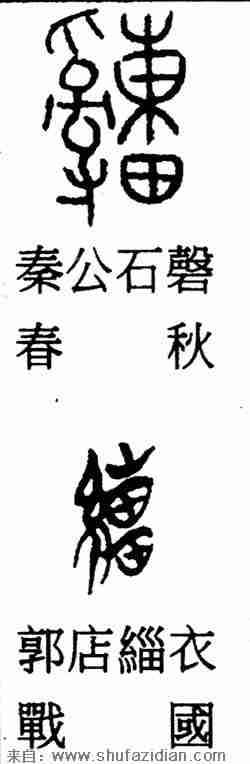 秦公石磬
春秋
郭店緇衣
戰國
来自：www.shufazidian.com